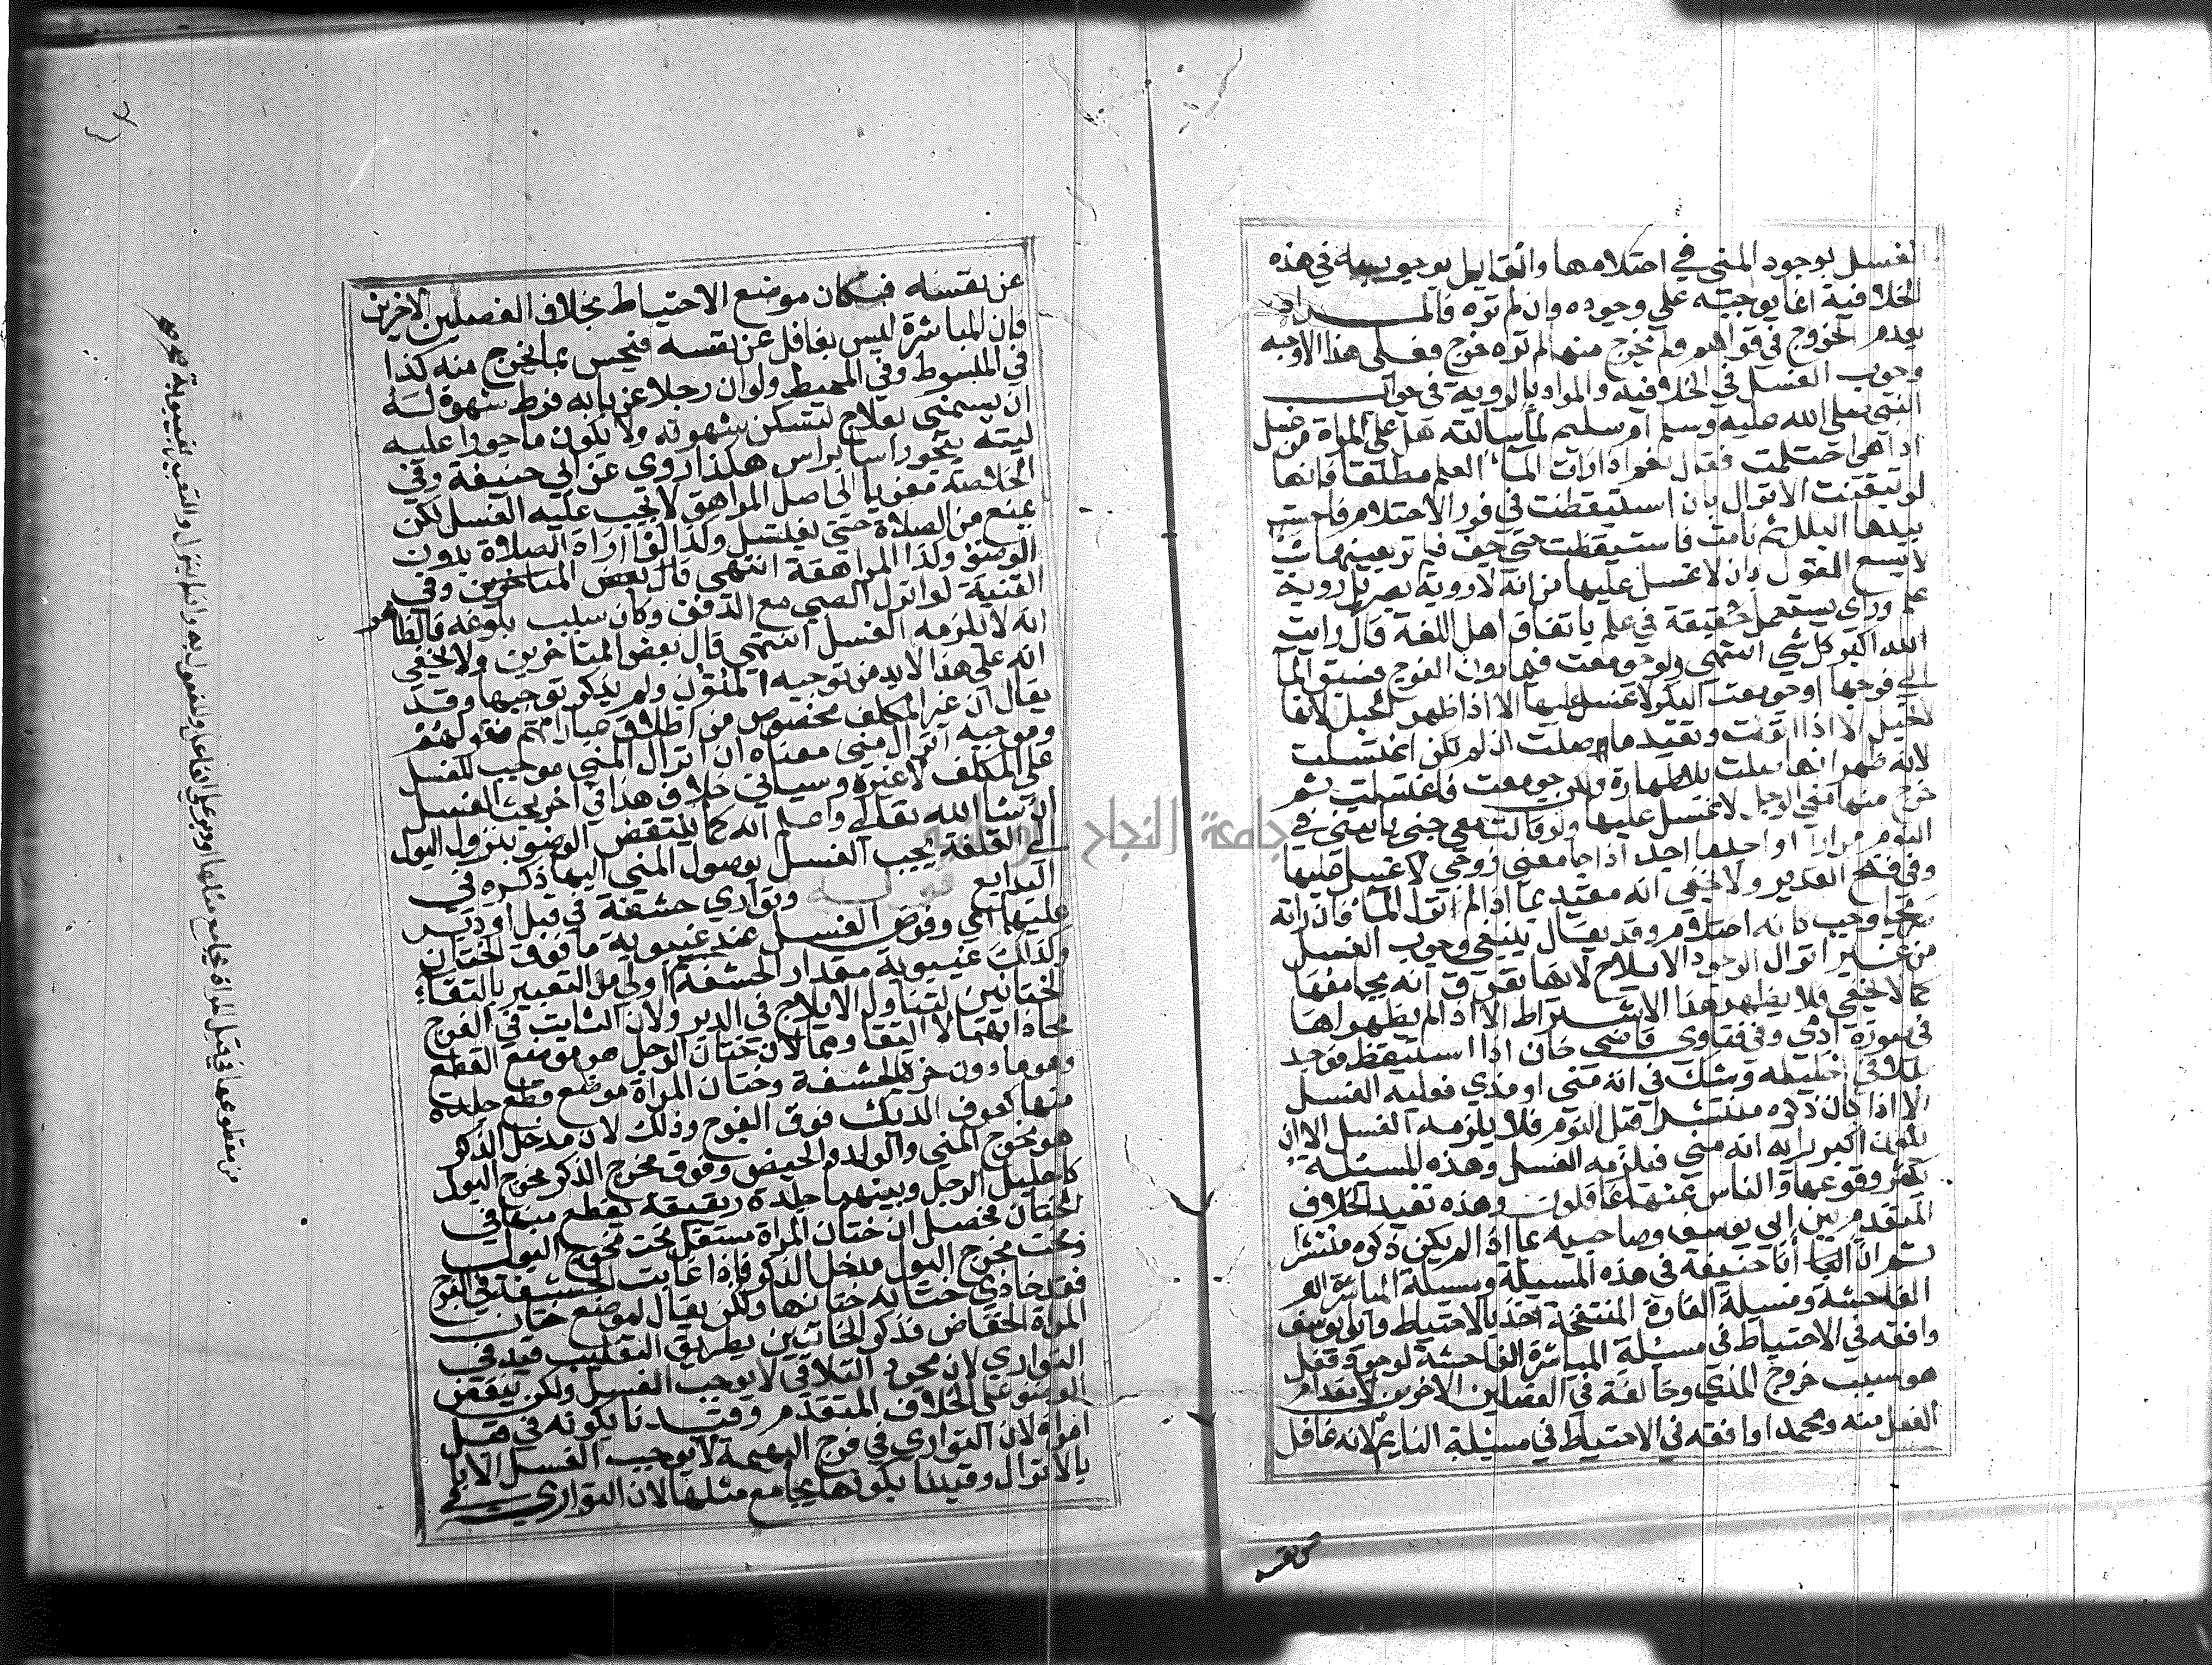 الغسل بوجود المني في احتلامها والقايل بوجوبه في هذه
الخلافية انما يوجبه على وجوده وان لم تره فالمراد
بعدم الخروج في قولهم ولم يخرج منها لم تره خرج فعلى هذا الاوجه
وجوب الغسل في الخلافية والمراد بالروية في جواب
النبي صلى الله عليه وسلم ام سليم لما سالته هل على المراة من غسل
اذا هي احتلمت فقال نعم اذا رات الما العلم مطلقا فانها
لو تيقنت الانزال بان استيقظت في فور الاحتلام فاحست
بيدها البلل ثم نامت فاستيقظت حتى جف فلم تر بعينها شيا
لا يسع القول بان لا غسل عليها مع انه لا روية بصر بل روية
علم وراى يستعمل حقيقة في علم باتفاق اهل اللغة قال رايت
الله اكبر كل شي انتهى ولو جومعت فيما دون الفرج فسبق الما
الى فرجها او جومعت البكر لا غسل عليها الا اذا ظهر الحبل لانها
لا تحبل الا اذا انزلت وتعيد ما صلت ان لم تكن اغتسلت
لانه ظهر انها صلت بلا طهارة ولو جومعت فاغتسلت ثم
خرج منها مني الرجل لا غسل عليها ولو قالت معي جني ياتيني في
النوم مرارا واجد ما اجد اذا جامعني زوجي لا غسل عليها
وفي فتح القدير ولا يخفى انه مقيد بما اذا لم تر الما فان راته
صريحا وجب كانه احتلام وقد يقال ينبغي وجوب الغسل
من غير انزال لوجود الايلاج لانها تعرف انه يجامعها
كما لا يخفى ولا يظهر هذا الاشتراط الا اذا لم يظهر لها
في صورة ادمي وفي فتاوى قاضي خان اذا استيقظ فوجد
بللا في احليله وشك في انه مني او مذي فعليه الغسل
الا اذا كان ذكره منتشرا قبل النوم فلا يلزمه الغسل الا ان
يكون اكبر رايه انه مني فيلزمه الغسل وهذه المسئلة
يكثر وقوعها والناس عنها غافلون وهذه تقيد الخلاف
المتقدم بين ابي يوسف وصاحبيه بما اذا لم يكن ذكره منتشرا
ثم ان ابا حنيفة في هذه المسيلة ومسيلة المباشرة
الفاحشة ومسيلة الفارة المنتفخة اخذ بالاحتياط وابو يوسف
وافقه في الاحتياط في مسئلة المباشرة الفاحشة لوجود فعل
هو سبب خروج المذي وخالفه في الفصلين الاخرين لانعدام
الفعل منه ومحمد وافقه في الاحتياط في مسيلة النايم لانه غافل
عن نفسه
عن نفسه فكان موضع الاحتياط بخلاف الفصلين الاخرين
فان المباشرة ليس بغافل عن نفسه فيحس بما يخرج منه كذا
في المبسوط وفي المحيط ولو ان رجلا عزبا به فرط شهوة له
ان يستمني بعلاج لتسكن شهوته ولا يكون ماجورا عليه
ليته ينجو راسا براس هكذا روي عن ابي حنيفة وفي
الخلاصة معزيا الى الاصل المراهق لا يجب عليه الغسل لكن
يمنع من الصلاة حتى يغتسل وكذا اذا اراد الصلاة بدون
الوضو وكذا المراهقة انتهى قال بعض المتاخرين وفي
القنية لو انزل الصبي مع الدفق وكان سبب بلوغه فالظاهر
انه لا يلزمه الغسل انتهى قال بعض المتاخرين ولا يخفى
انه على هذا لا بد من توجيه المتون ولم يذكر توجيها وقد
يقال ان غير المكلف مخصوص من اطلاق عباراتهم فقولهم
وموجبه انزال مني معناه ان انزال المني موجب للغسل
على المكلف لا غيره وسياتي خلاف هذا في اخر بحث الغسل
ان شا الله تعالى واعلم انه كما ينتقض الوضو بنزول البول
الى القلفة يجب الغسل بوصول المني اليها ذكره في
البدايع قوله وتواري حشفة في قبل او دبر
عليهما اي وفرض الغسل عند غيبوبة ما فوق الختان
وكذلك غيبوبة مقدار الحشفة اولى من التعبير بالتقاء
الختانين لتناول الايلاج في الدبر ولان الثابت في الفرج
محاذاتهما لا التقاوهما لان ختان الرجل هو موضع القطع
وهو ما دون حزة الحشفة وختان المراة موضع قطع جلدة
منها كعرف الديك فوق الفرج وذلك لان مدخل الذكر
هو مخرج المني والولد والحيض وفوق مخرج الذكر مخرج البول
كاحليل الرجل وبينهما جلدة رقيقة يقطع منها في
الختان فحصل ان ختان المراة مستقل تحت مخرج البول
وتحت مخرج البول مدخل الذكر فاذا غابت الحشفة في الفرج
فقد حاذى ختانه ختانها ولكن يقال لموضع ختان
المراة الخفاض فذكر الختانين بطريق التغليب قيد في
التواري لان مجرد التلاقي لا يوجب الغسل ولكن ينقض
الوضو على الخلاف المتقدم وقيدنا بكونه في قبل
امراة لان التواري في فرج البهيمة لا يوجب الغسل الا
بالانزال وقيدنا بكونها يجامع مثلها لان التواري في